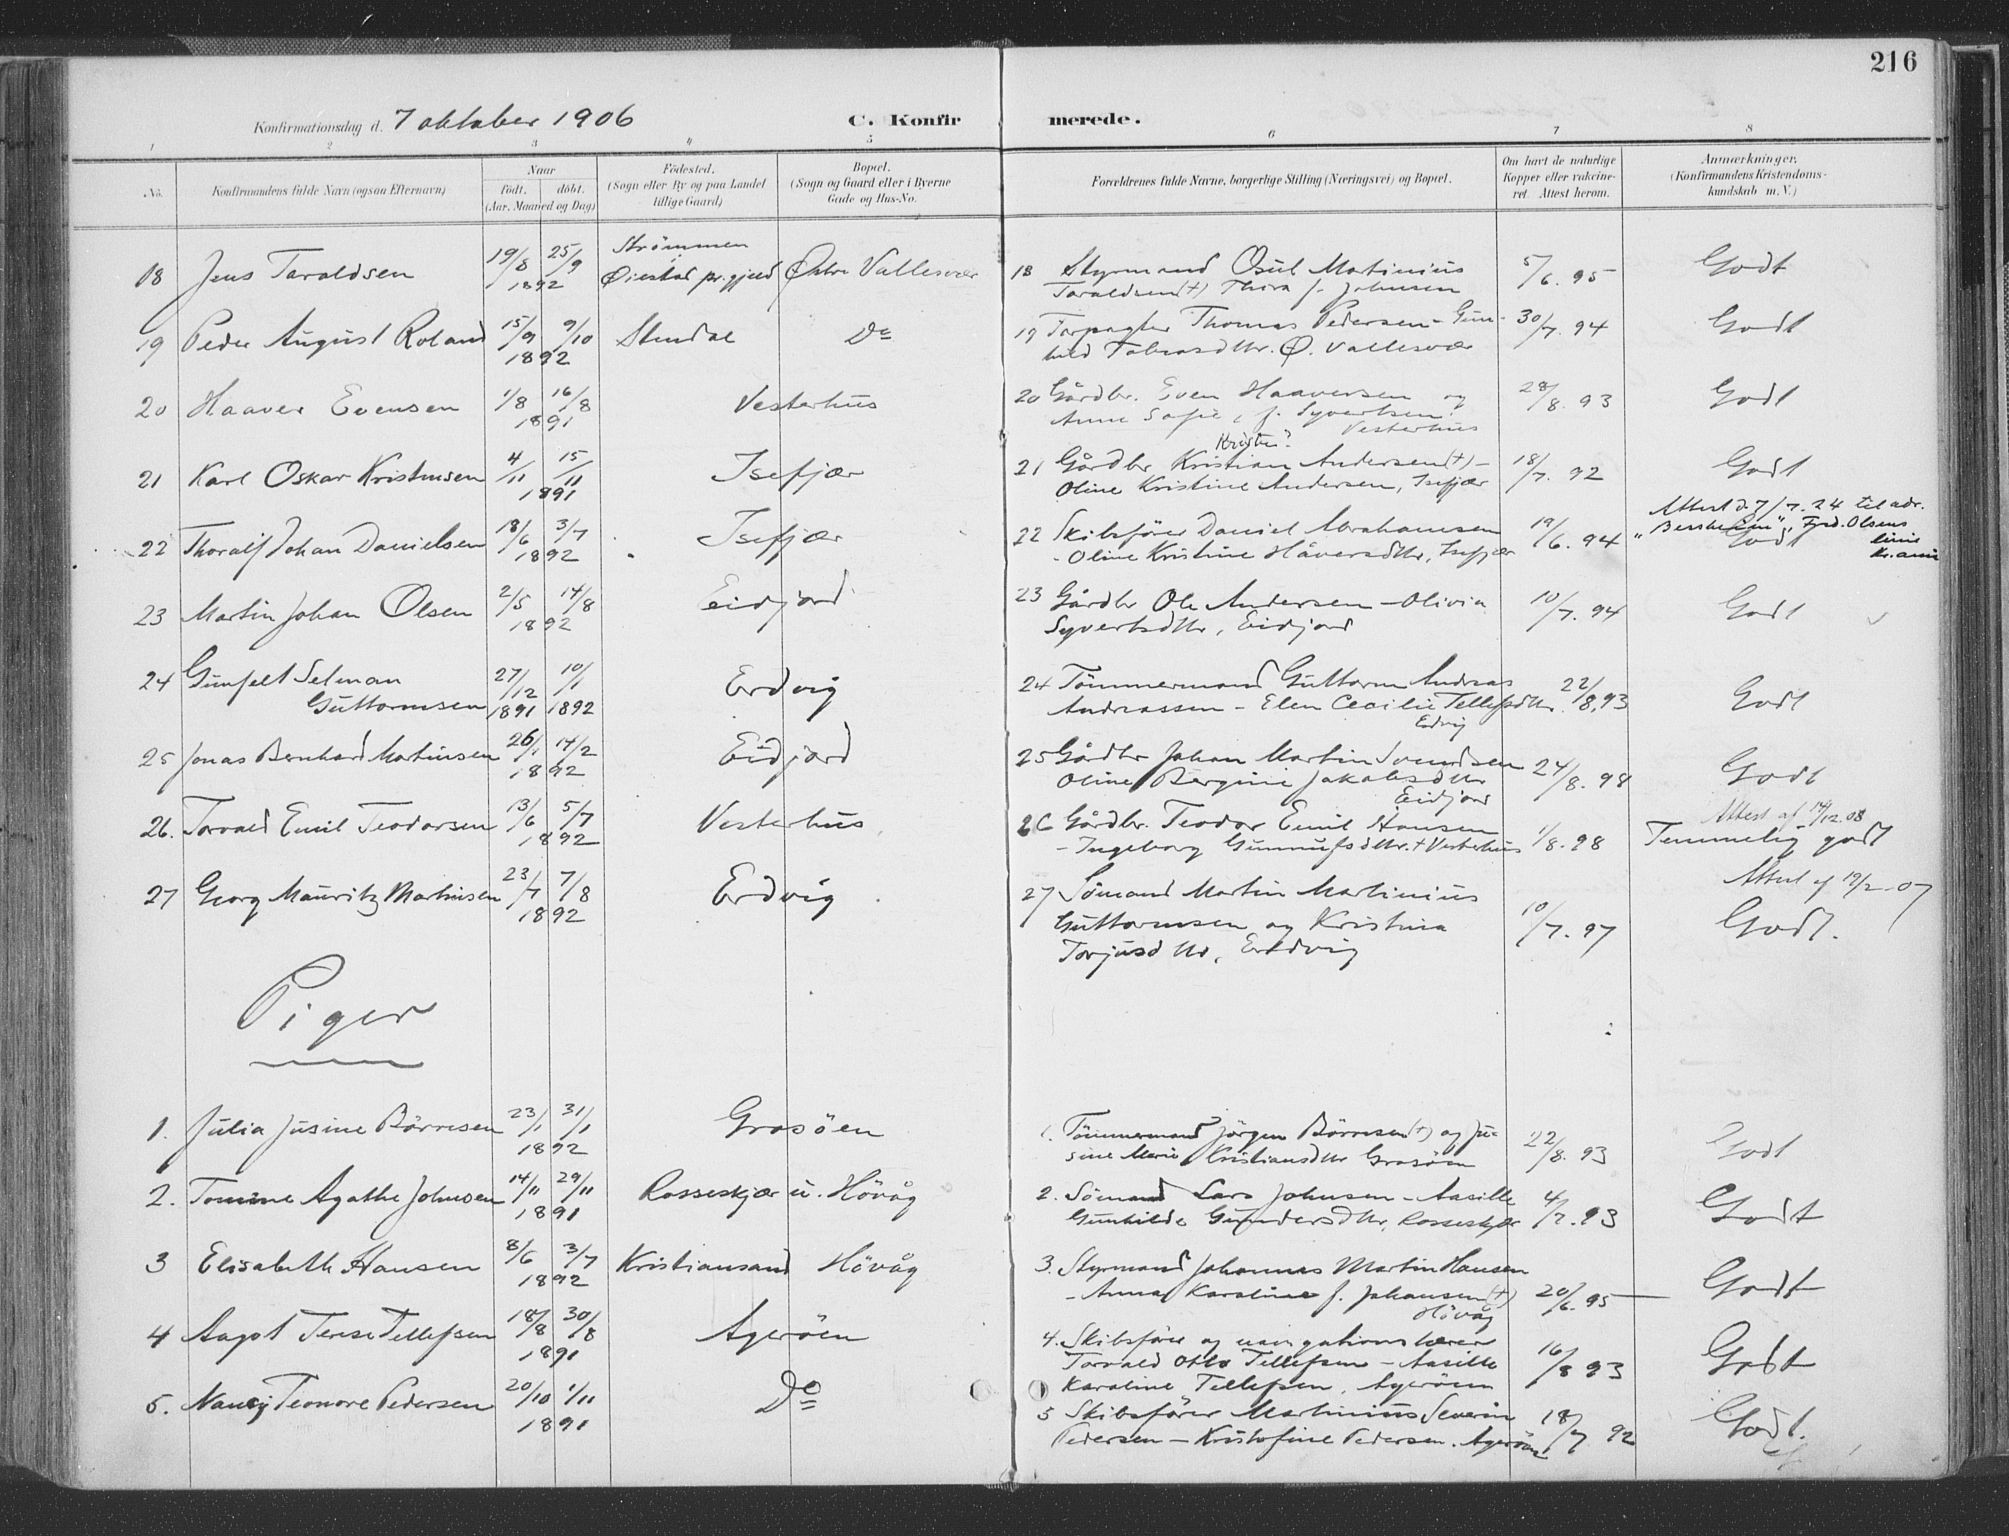 216
Konfirmationsdag d. 7 oktober 1906
C. Konfirmerede.
1 2 3 4 5 6 7 8
No.
Konfirmandens fulde Navn (ogsaa Efternavn)
Naar
født. døbt.
(Aar, Maaned og Dag)
Fødested.
(Sogn eller By og paa Landet
tillige Gaard)
Bopæl.
(Sogn og Gaard eller i Byerne
Gade og Hus-No.
Forældrenes fulde Navne, borgerlige Stilling (Næringsvei) og Bopæl.
Om havt de naturlige
Kopper eller vaksine-
ret. Attest herom.
Anmærkninger.
(Konfirmandens Kristendoms-
kundskab m. V.)
18 Jens Taraldsen 19/8 25/9 1892 Strömmen Øiestad pr.gjeld Østre Vallesvær
18 Styrmand Osul Martinius
Taraldsen (+) Thora f. Johnsen 5/6. 95 Godt
19 Peder August Roland 15/9 9/10 1892 Stendal Do
19 Forpagter Thomas Pedersen - Gun-
hild Tobiasdtr. Ø. Vallesvær 30/7. 94 Godt
20 Haaver Evensen 1/8 16/8 1891 Vesterhus
20 Gårdbr. Even Haaversen og
Anne Sofie, f. Syvertsen
Vesterhus 28/8. 93 Godt
21 Karl Oskar Kristensen 4/11 15/11 1891 Isefjær
Kristen?
21 Gårdbr Kristian Andersen (+) -
Oline Kristine Andersen, Isefjær 18/7. 92 Godt
22 Thoralf Johan Danielsen 18/6 3/7 1892 Isefjær
22 Skibsfører Daniel Abrahamsen
- Oline Kristine Håversdtr, Isefjær 19/6. 94 Godt
Attest d. 7/7. 24 til adr.
Fred. Olsens
linie
Kr.ania
23 Martin Johan Olsen 2/5 14/8 1892 Eidjord
23 Gårdbr Ole Andersen - Olivia
Syvertsdtr, Eidjord 10/7. 94 Godt
24 Gunfelt Selman
Guttormsen 27/12 1891 10/1 1892 Erdvig
24 Tömmermand Guttorm Andreas
Andreassen - Elen Cecilie Tellefsdtr
Erdvig 22/8. 93 Godt
25 Jonas Bernhard Martinsen 26/1 14/2 1892 Eidjord
25 Gårdbr Johan Martin Svendsen
Oline Bergine Jakobsdtr
Eidjord 24/8. 98 Godt
26. Torvald Emil Teodorsen 13/6 5/7 1892 Vesterhus
26 Gårdbr. Teodor Emil Hansen
- Ingeborg Gunnufsdtr. + Vesterhus 1/8. 98 Temmelig godt
Attest af 14/12 08
27 Georg Mauritz Martinsen 23/7 7/8 1892 Erdvig
27 Sömand Martin Martinius
Guttormsen og Kristina
Torjusdtr, Erdvig 10/7. 97 Godt.
Attest af 19/2-07
Piger
1. Julia Jusine Börresen 23/1 31/1 1892 Grosöen
1. Tömmermand Jörgen Börresen (+) og Ju-
sine Marie Kristiansdtr Grosöen 22/8. 93 Godt
2. Tomine Agathe Johnsen 14/11 29/11 1891 Rosseskjær u. Hövåg
2. Sömand Lars Johnsen - Aasille
Gunhilde Gundersdtr, Rosseskjær 4/7. 93 Godt
3 Elisabeth Hansen 8/6 3/7 1892 Kristiansand Hövåg
3. Styrmand Johannes Martin Hansen
- Anna Karoline f. Johansen (+)
Hövåg 20/6. 95 Godt
4 Aagot Terese Tellefsen 18/8 30/8 1891 Ageröen
4. Skibsfører og navigationslærer
Torvald Otto Tellefsen - Aasille
Karoline Tellefsen, Ageröen 16/8 93 Godt
5. Nancy Teonore Pedersen 20/10 1/11 1891 Do
5 Skibsfører Martinius Severin
Pedersen - Kristofine Pedersen. Ageröen 18/7 92 Godt.